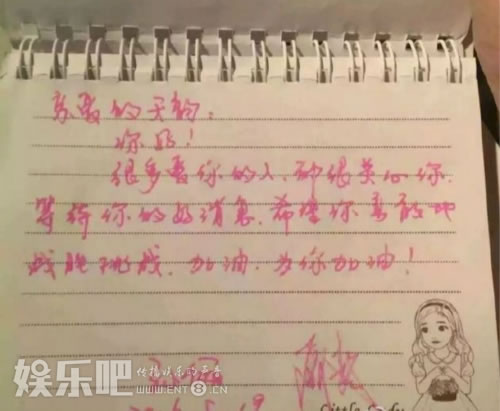 亲爱的天韵：
你好！
很多爱你的人，都很关心你，
等待你的好消息，希望你勇敢地
战胜挑战，加油，为你加油！
娱乐吧
传播娱乐的声音
WWW.ENT8.CN
Little